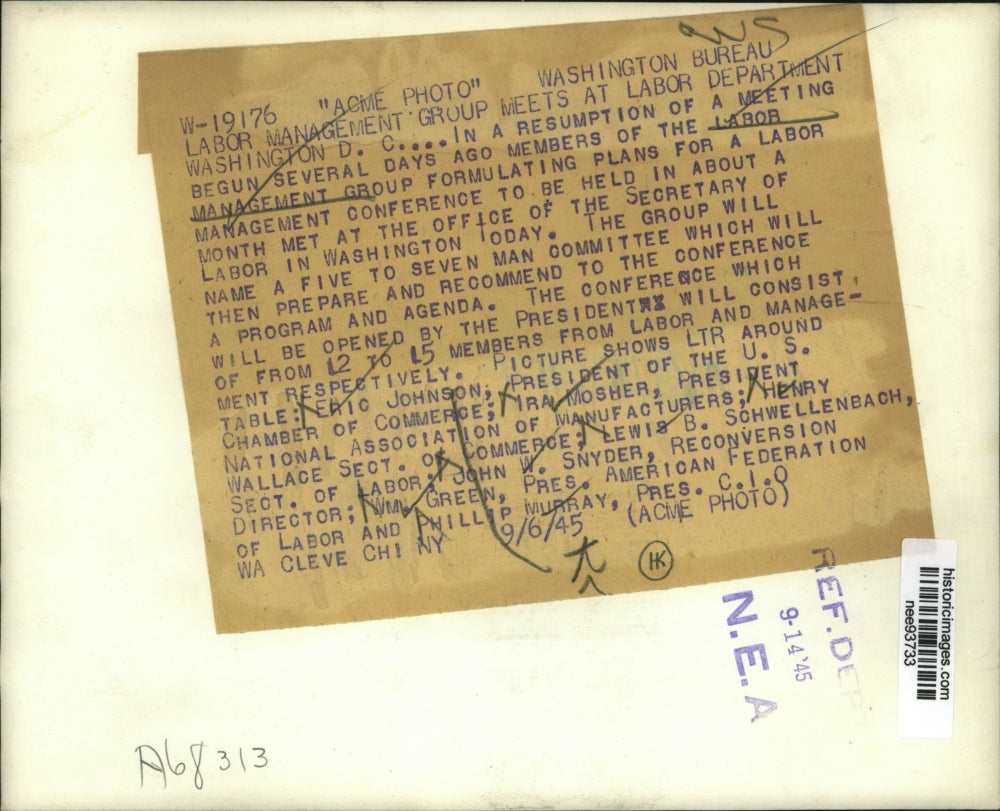 WS
W-19176 "ACME PHOTO" WASHINGTON BUREAU
LABOR MANAGEMENT GROUP MEETS AT LABOR DEPARTMENT
WASHINGTON D. C....IN A RESUMPTION OF A MEETING
BEGUN SEVERAL DAYS AGO MEMBERS OF THE LABOR
MANAGEMENT GROUP FORMULATING PLANS FOR A LABOR
MANAGEMENT CONFERENCE TO BE HELD IN ABOUT A
MONTH MET AT THE OFFICE OF THE SECRETARY OF
LABOR IN WASHINGTON TODAY. THE GROUP WILL
NAME A FIVE TO SEVEN MAN COMMITTEE WHICH WILL
THEN PREPARE AND RECOMMEND TO THE CONFERENCE
A PROGRAM AND AGENDA. THE CONFERENCE WHICH
WILL BE OPENED BY THE PRESIDENT WILL CONSIST
OF FROM 12 TO 15 MEMBERS FROM LABOR AND MANAGE-
MENT RESPECTIVELY. PICTURE SHOWS LTR AROUND
TABLE: ERIC JOHNSON, PRESIDENT OF THE U. S.
CHAMBER OF COMMERCE; IRA MOSHER, PRESIDENT
NATIONAL ASSOCIATION OF MANUFACTURERS; HENRY
WALLACE SECT. OF COMMERCE; LEWIS B. SCHWELLENBACH,
SECT. OF LABOR, JOHN W. SNYDER, RECONVERSION
DIRECTOR; WM. GREEN, PRES. AMERICAN FEDERATION
OF LABOR AND PHILLIP MURRAY, PRES. C.I.O
WA CLEVE CHI NY 9/6/45 (ACME PHOTO)
HK
REF.DEPT
9-14'45
N.E.A
historicimages.com
nee93733
A68313